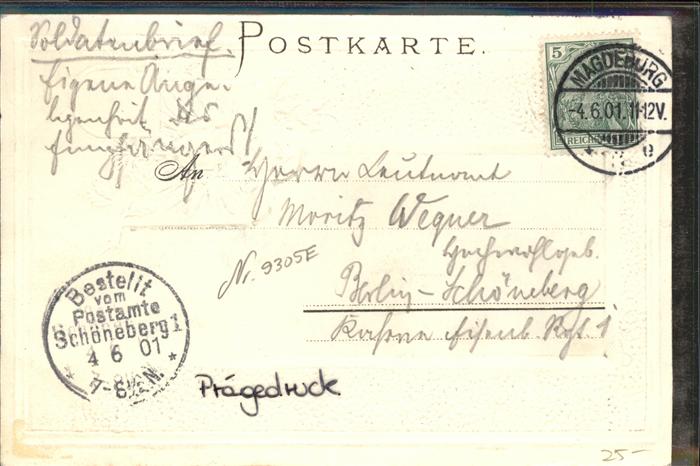 Soldatenbrief.
Eigene Ange-
legenheit des
Empfängers
POSTKARTE.
5
REICHSPOST
MAGDEBURG
-4.6.01.11-12V.
* e
An
Herrn Leutnant
Moritz Wegner
Hochwohlgeb.
Nr. 9305E
Berlin-Schöneberg
Kaserne Eisenb. Rgt 1
Bestellt
vom
Postamte
Schöneberg 1
4 6 01
* 7-8½N. *
Prägedruck
25-